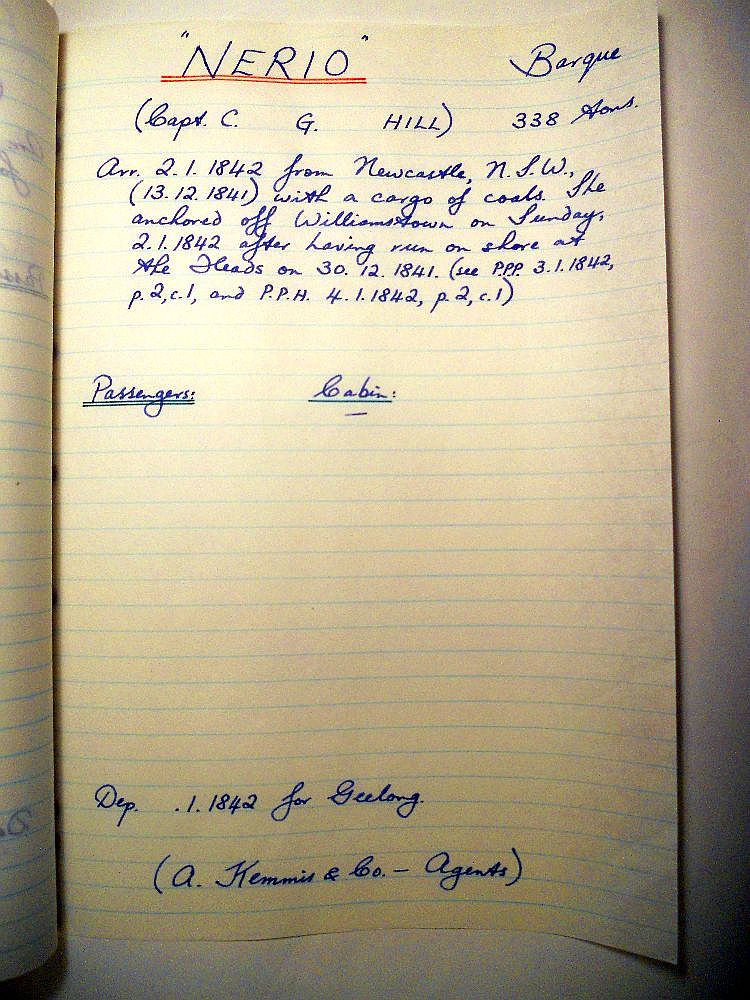 "NERIO" Barque
(Capt. C. G. HILL) 338 tons.
Arr. 2.1.1842 from Newcastle, N.S.W.,
(13.12.1841) with a cargo of coals. She
anchored off Williamstown on Sunday,
2.1.1842 after having run on shore at
the Heads on 30.12.1841. (see P.P.P. 3.1.1842,
p.2, c.1, and P.P.H. 4.1.1842, p.2, c.1)
Passengers: Cabin:
—
Dep. .1.1842 for Geelong.
(A. Kemmis & Co. – Agents)